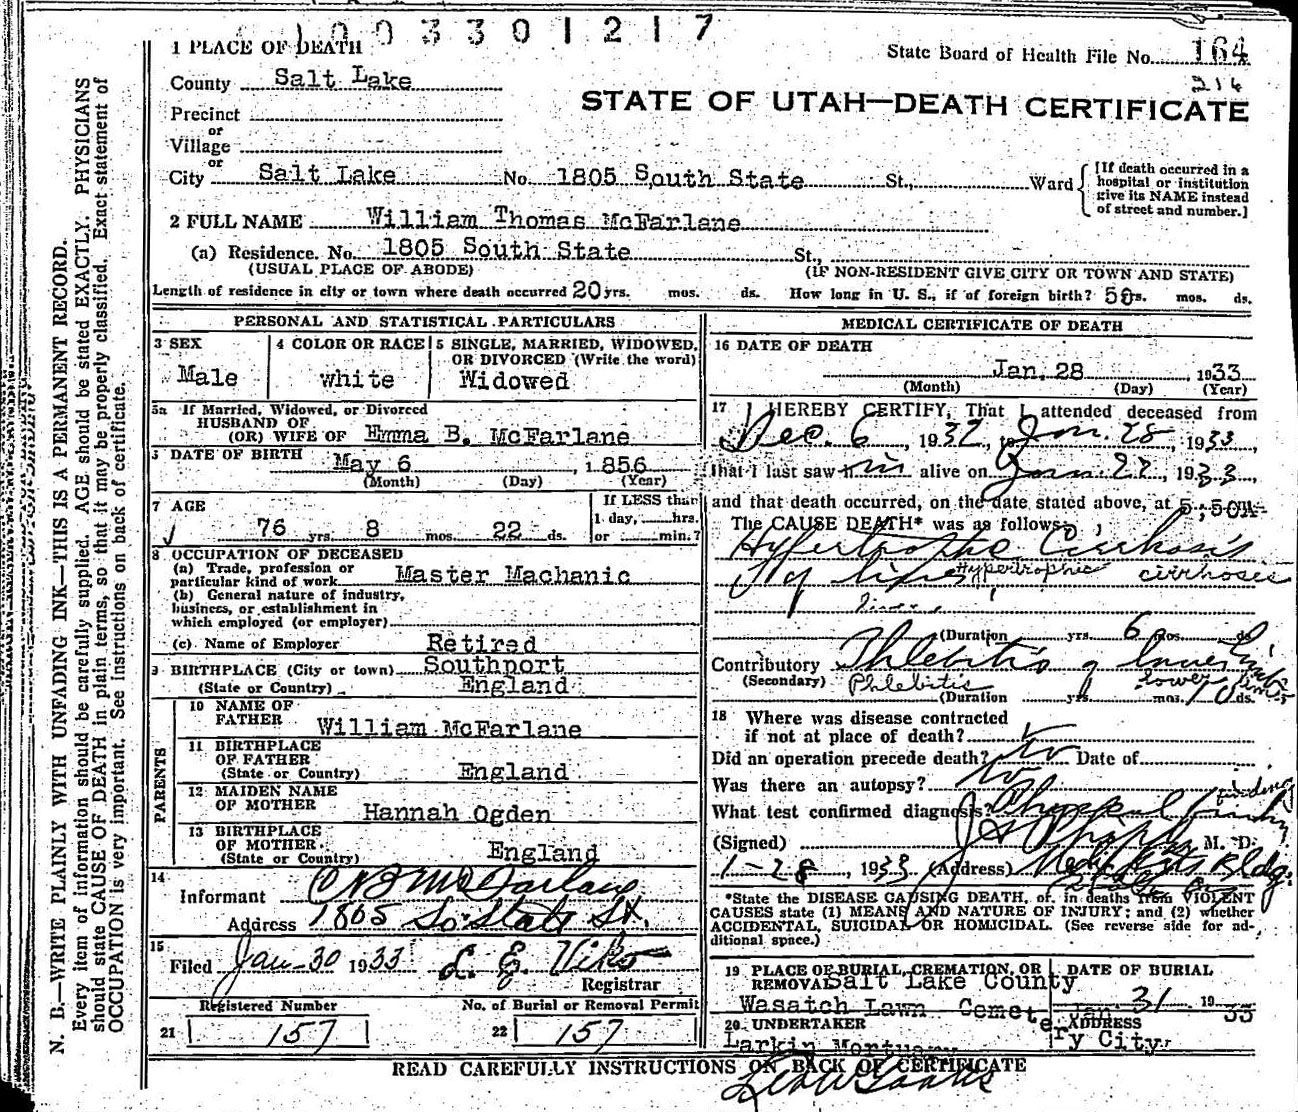 1003301217
1 PLACE OF DEATH
State Board of Health File No. 164
216
County Salt Lake
STATE OF UTAH—DEATH CERTIFICATE
Precinct
or
Village
or
City Salt Lake No. 1805 South State St., Ward
[If death occurred in a
hospital or institution
give its NAME instead
of street and number.]
2 FULL NAME William Thomas McFarlane
(a) Residence. No. 1805 South State St.,
(USUAL PLACE OF ABODE) (IF NON-RESIDENT GIVE CITY OR TOWN AND STATE)
Length of residence in city or town where death occurred 20 yrs. mos. ds. How long in U. S., if of foreign birth? 50 rs. mos. ds.
PERSONAL AND STATISTICAL PARTICULARS
3 SEX
Male
4 COLOR OR RACE
white
5 SINGLE, MARRIED, WIDOWED,
OR DIVORCED (Write the word)
Widowed
5a If Married, Widowed, or Divorced
HUSBAND OF
(OR) WIFE OF Emma B. McFarlane
DATE OF BIRTH May 6, 1856
(Month) (Day) (Year)
7 AGE
76 yrs. 8 mos. 22 ds.
If LESS than
1 day, hrs.
or min.?
8 OCCUPATION OF DECEASED
(a) Trade, profession or
particular kind of work Master Machanic
(b) General nature of industry,
business, or establishment in
which employed (or employer)
(c) Name of Employer Retired
9 BIRTHPLACE (City or town) Southport
(State or Country) England
PARENTS
10 NAME OF
FATHER William McFarlane
11 BIRTHPLACE
OF FATHER
(State or Country) England
12 MAIDEN NAME
OF MOTHER Hannah Ogden
13 BIRTHPLACE
OF MOTHER.
(State or Country) England
14
Informant McFarlane
Address 1865 So. State St.
15
Filed Jan-30 1933 L. E. Viko
Registrar
Registered Number
21 157
No. of Burial or Removal Permit
22 157
MEDICAL CERTIFICATE OF DEATH
16 DATE OF DEATH
Jan. 28, 1933
(Month) (Day) (Year)
17 I HEREBY CERTIFY, That I attended deceased from
Dec. 6, 1932, to Jan. 28, 1933,
that I last saw him alive on Jan. 27, 1933,
and that death occurred, on the date stated above, at 5:50A m.
The CAUSE DEATH* was as follows:
Hypertrophic Cirrhosis
of liver Hypertrophic cirrhosis
liver
(Duration yrs. 6 mos. ds.
Contributory Phlebitis of lower limbs
(Secondary) Phlebitis lower limbs
(Duration yrs. mos. 10 ds.
18 Where was disease contracted
if not at place of death?
Did an operation precede death? no Date of
Was there an autopsy? no
What test confirmed diagnosis? findings
(Signed) M. D.
1-28, 1933 (Address) Medical Arts Bldg.
*State the DISEASE CAUSING DEATH, or, in deaths from VIOLENT
CAUSES state (1) MEANS AND NATURE OF INJURY; and (2) whether
ACCIDENTAL, SUICIDAL OR HOMICIDAL. (See reverse side for ad-
ditional space.)
19 PLACE OF BURIAL, CREMATION, OR
REMOVAL Salt Lake County
Wasatch Lawn Cemetery
DATE OF BURIAL
Jan. 31, 1933
20 UNDERTAKER
Larkin Mortuary
ADDRESS
City
READ CAREFULLY INSTRUCTIONS ON BACK OF CERTIFICATE
N. B.—WRITE PLAINLY WITH UNFADING INK—THIS IS A PERMANENT RECORD.
Every item of information should be carefully supplied. AGE should be stated EXACTLY. PHYSICIANS
should state CAUSE OF DEATH in plain terms, so that it may be properly classified. Exact statement of
OCCUPATION is very important. See instructions on back of certificate.